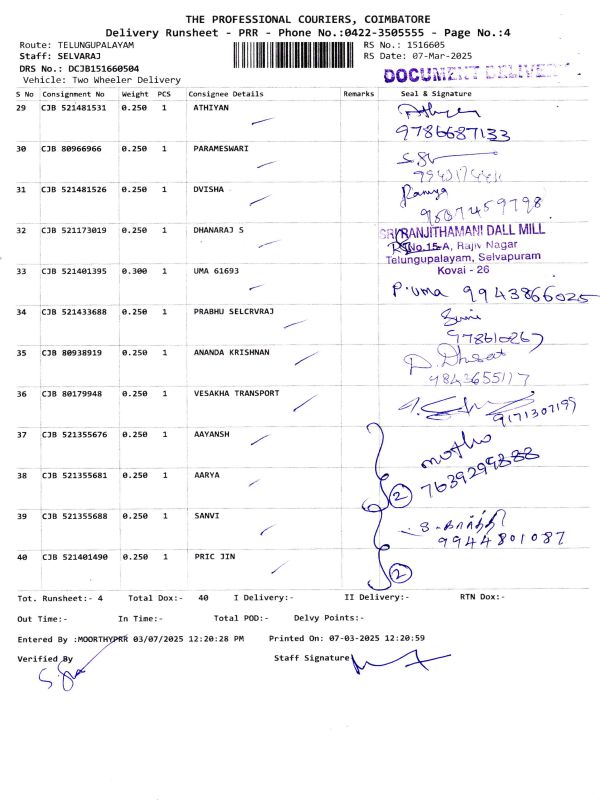 THE PROFESSIONAL COURIERS, COIMBATORE
Delivery Runsheet - PRR - Phone No.:0422-3505555 - Page No.:4
Route: TELUNGUPALAYAM RS No.: 1516605
Staff: SELVARAJ RS Date: 07-Mar-2025
DRS No.: DCJB151660504
Vehicle: Two Wheeler Delivery
DOCUMENT DELIVERY
S No Consignment No Weight PCS Consignee Details Remarks Seal & Signature
29 CJB 521481531 0.250 1 ATHIYAN
9786687133
30 CJB 80966966 0.250 1 PARAMESWARI
31 CJB 521481526 0.250 1 DVISHA Ramya
32 CJB 521173019 0.250 1 DHANARAJ S
SRI RANJITHAMANI DALL MILL
No.15-A, Rajiv Nagar
Telungupalayam, Selvapuram
Kovai - 26
33 CJB 521401395 0.300 1 UMA 61693
P.uma 9943866025
34 CJB 521433688 0.250 1 PRABHU SELCRVRAJ
35 CJB 80938919 0.250 1 ANANDA KRISHNAN
9843655117
36 CJB 80179948 0.250 1 VESAKHA TRANSPORT
37 CJB 521355676 0.250 1 AAYANSH
38 CJB 521355681 0.250 1 AARYA
2 7639299388
39 CJB 521355688 0.250 1 SANVI
9944801087
40 CJB 521401490 0.250 1 PRIC JIN
2
Tot. Runsheet:- 4 Total Dox:- 40 I Delivery:- II Delivery:- RTN Dox:-
Out Time:- In Time:- Total POD:- Delvy Points:-
Entered By :MOORTHYPRR 03/07/2025 12:20:28 PM Printed On: 07-03-2025 12:20:59
Verified By Staff Signature